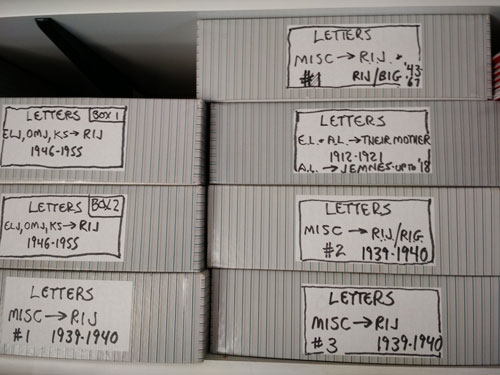 LETTERS BOX 1
ELJ, OMJ, KS→RIJ
1946-1955
LETTERS BOX 2
ELJ, OMJ, KS→RIJ
1946-1955
LETTERS
MISC→RIJ
#1 1939-1940
LETTERS
MISC→RIJ +
#1 RIJ/BIG '43-'67
LETTERS
E.L. + A.L. →THEIR MOTHER
1912-1921
A.L. → JEMNES UP TO '18
LETTERS
MISC → RIJ/RIG
#2 1939-1940
LETTERS
MISC→RIJ
#3 1939-1940